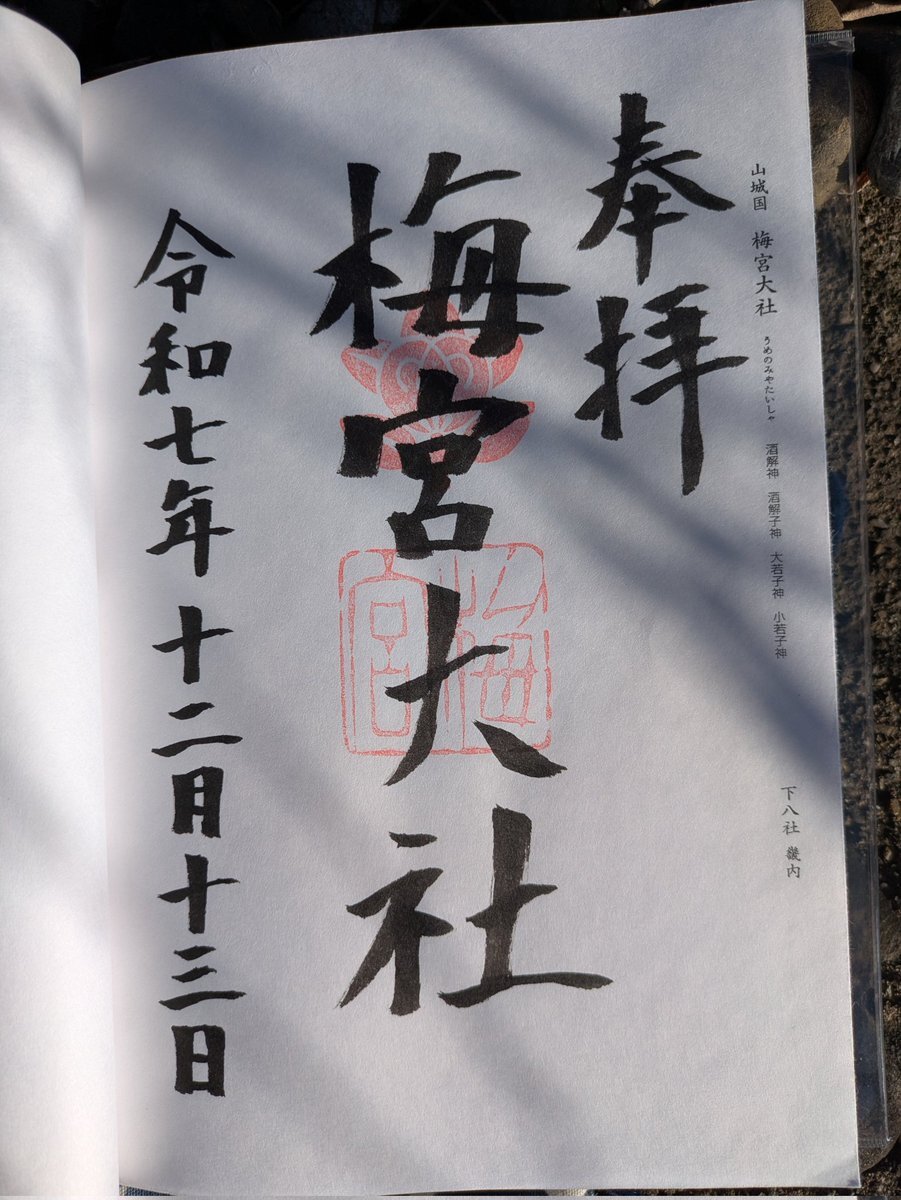 山城国 梅宮大社 うめのみやたいしゃ 酒解神 酒解子神 大若子神 小若子神
下八社 畿内
奉拝
梅宮大社
梅宮
令和七年十二月十三日